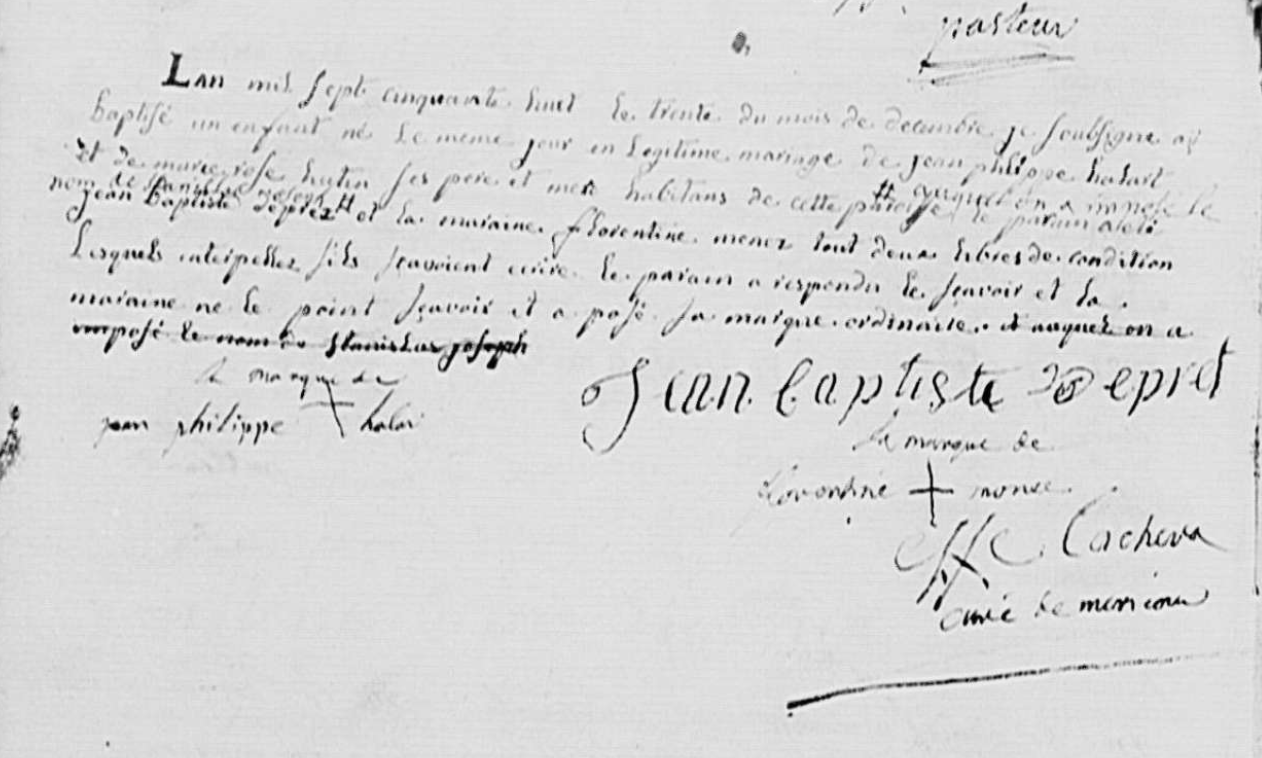 pasteur
Lan mil sept cinquante huit le trente du mois de decembre je soubsigne ai
baptisé un enfant né le meme jour en legitime mariage de jean philippe halart
et de marie rose hutin ses pere et mere habitans de cette paroisse # auquel on a imposé le
nom de stanislas joseph # le parain a eté
jean baptiste deprez et la maraine florentine menez tout deux libres de condition
Lesquels interpellez sils scavoient ecrire le parain a respondu le scavoir et la
maraine ne le point scavoir et a posé sa marque ordinaire. et auquel on a
imposé le nom de stanislas joseph
la marque de
jean philippe + halar
Jean baptiste Depret
la marque de
florentine + monee
Cacheva
curé de